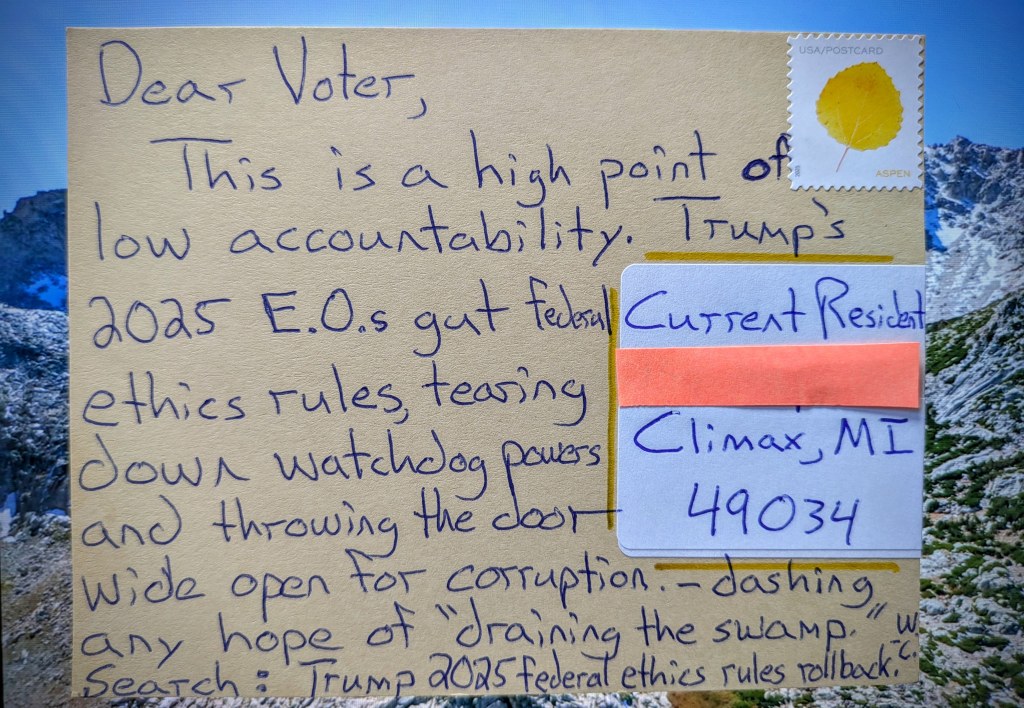 Dear Voter,
This is a high point of
low accountability. Trump's
2025 E.O.s gut federal
ethics rules, tearing
down watchdog powers
and throwing the door
wide open for corruption. - dashing
any hope of "draining the swamp." W
Search: Trump 2025 federal ethics rules rollback. C.
USA/POSTCARD
ASPEN
Current Resident
Climax, MI
49034